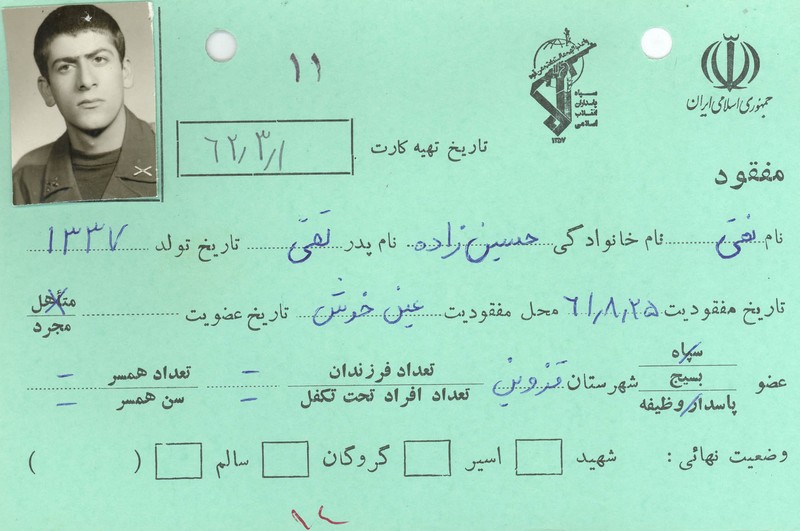 ۱۱
جمهوری اسلامی ایران
سپاه
پاسداران
انقلاب
اسلامی
۱۳۵۷
تاریخ تهیه کارت ۶۲٫۳٫۱
مفقود
نام نقی نام خانوادگی حسین زاده نام پدر تقی تاریخ تولد ۱۳۳۷
تاریخ مفقودیت ۶۱٫۸٫۲۵ محل مفقودیت عین خوش تاریخ عضویت متأهل مجرد
عضو سپاه بسیج پاسدار وظیفه شهرستان قزوین تعداد فرزندان – تعداد همسر –
تعداد افراد تحت تکفل – سن همسر –
وضعیت نهائی : شهید اسیر گروگان سالم ( )